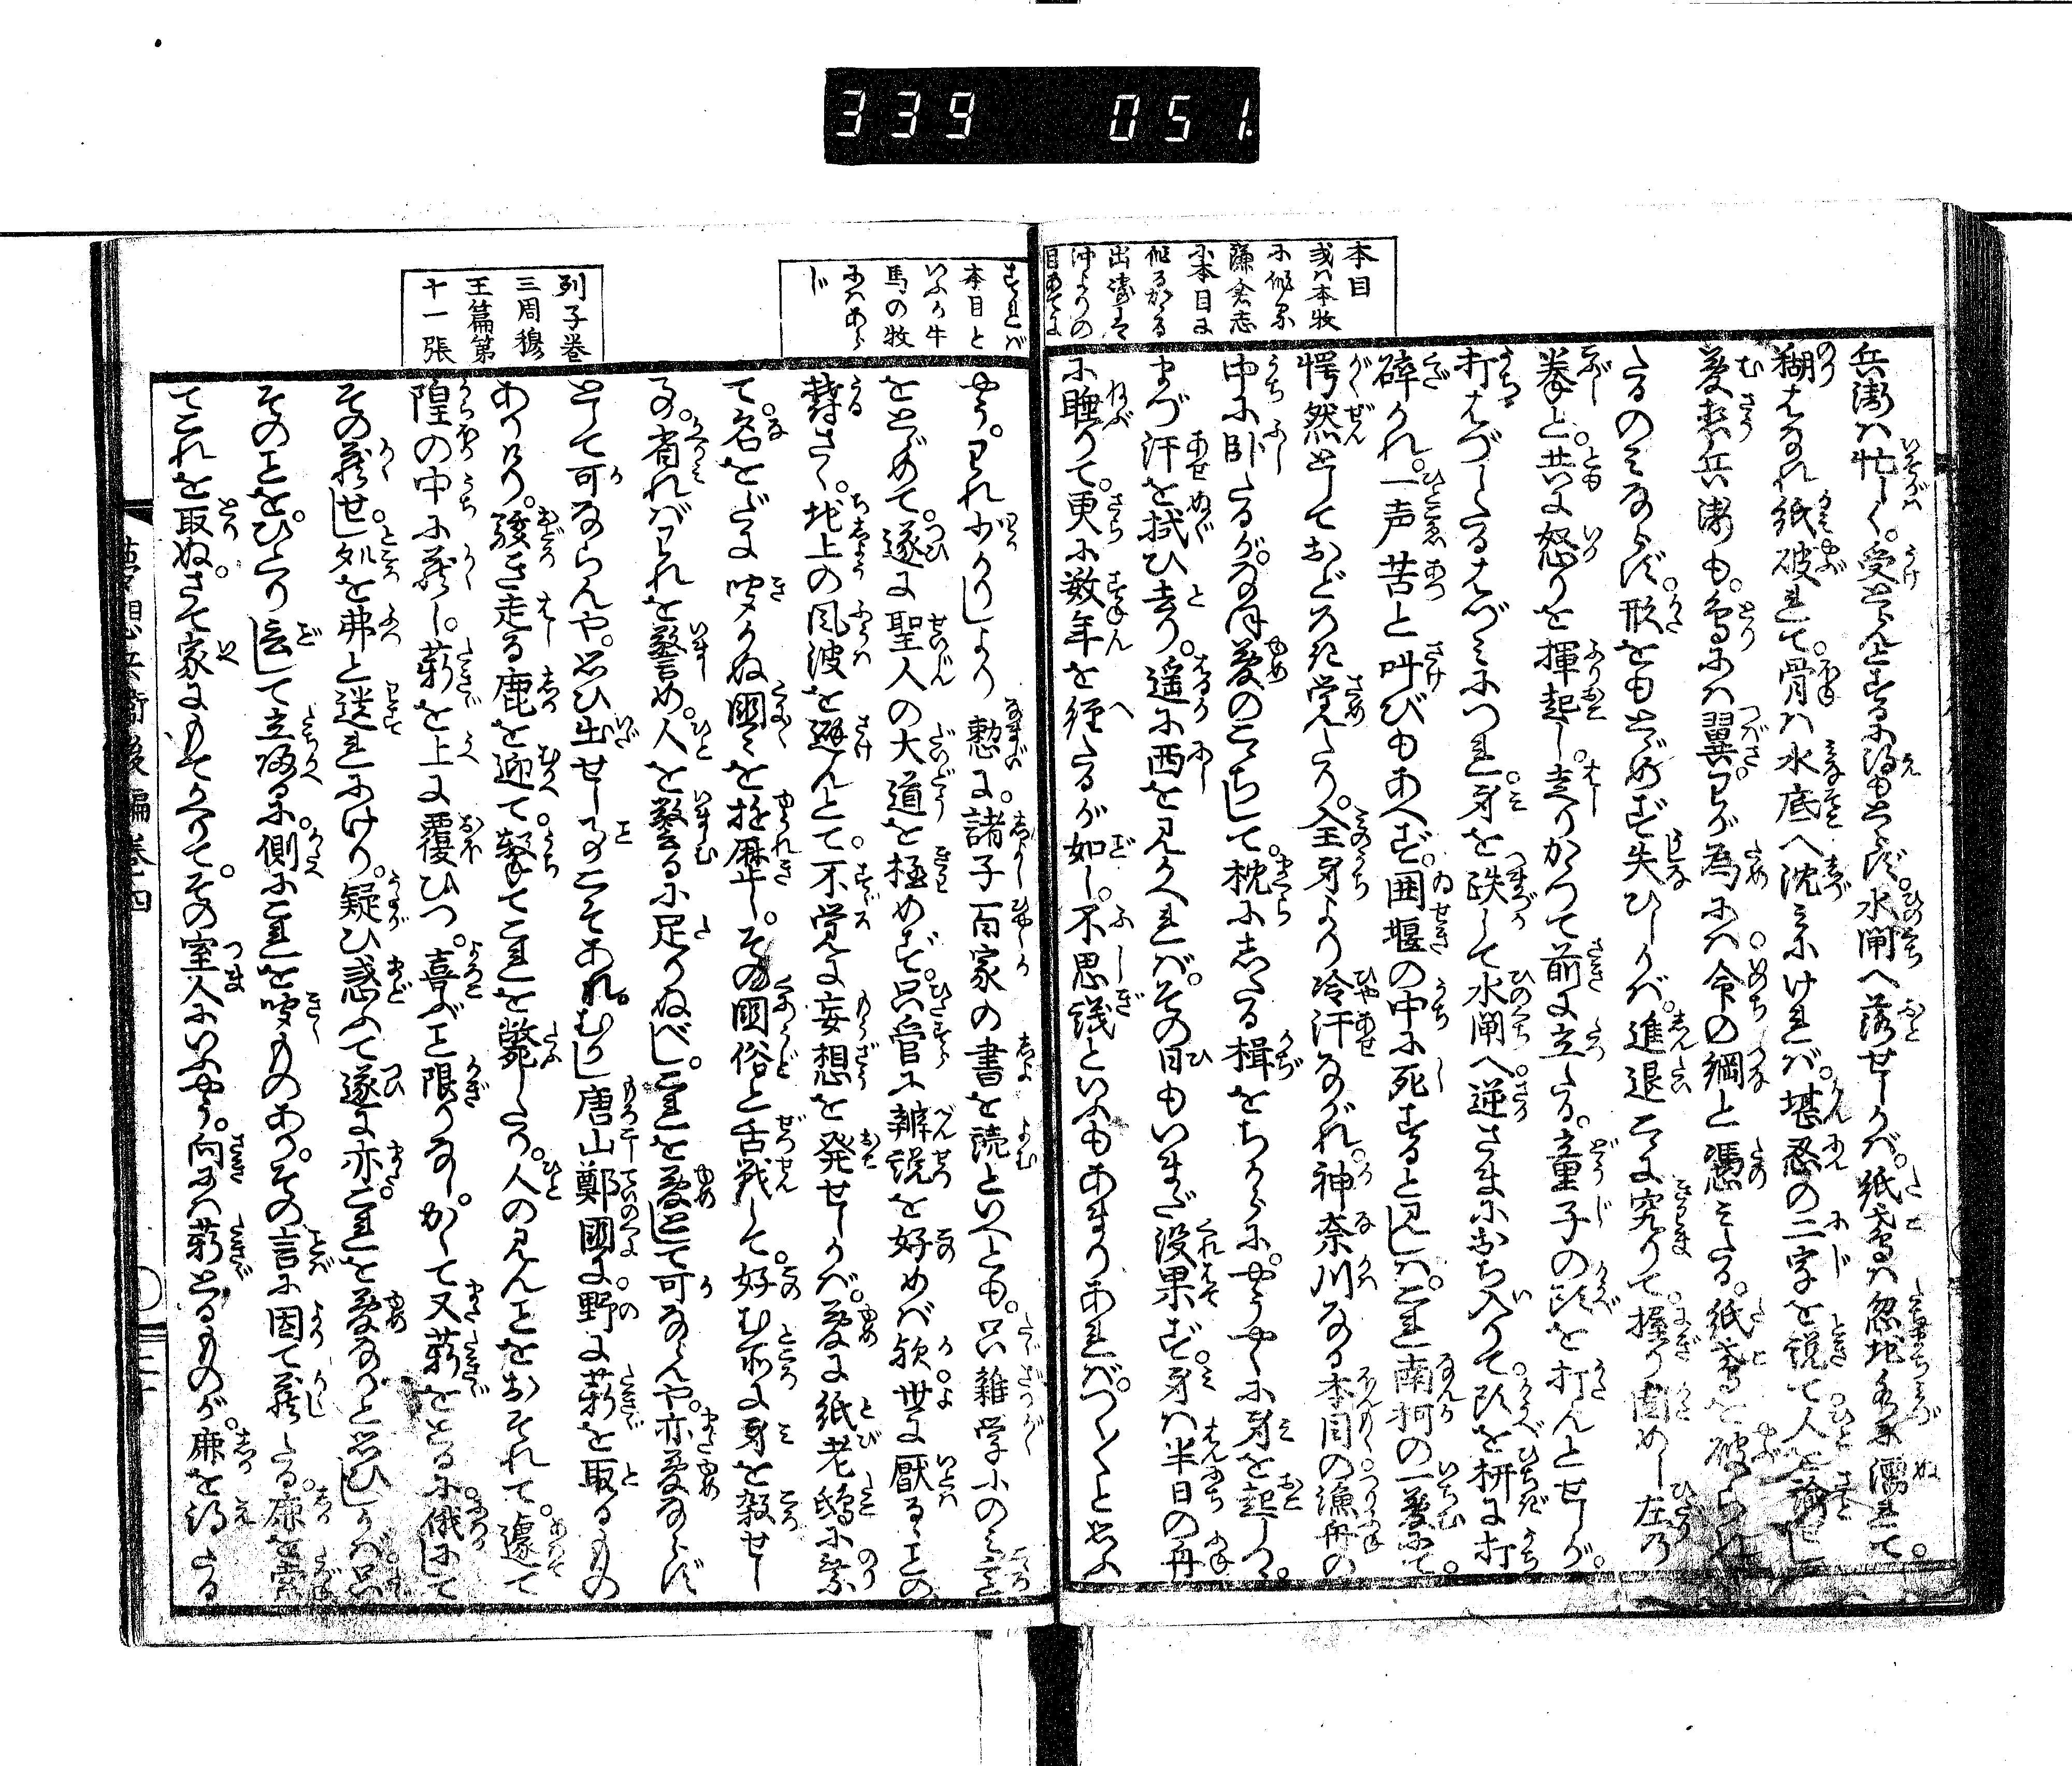 339 051.
本目
或は本牧
に作る
鎌倉志
に本目に
作るがある
目あてに
兵衛は忙しく。受とらんとするに得もとらず。水閘へ落せしかば。紙鳶は忽地水に濡れて。
糊はなれ紙破れて。骨は水底へ沈みにければ。堪忍の二字を説て人を諭せし
夢想兵衛も。鳥には翼。わが為には命の綱と憑みたる。紙鳶を破られ
たるのみならず。形をもとゞめず失ひしかば。進退こゝに究りて。握り固めし左の
拳と。共に怒りを揮起し。走りかゝつて前に立たる。童子の頭を打んとせしが。
打はづしたるはづみにつれ。身を跌して水閘へ。逆さまにおち入りて。頭を枅に打
碎かれ。一声苦と叫びもあへず。囲堰の中に死すると見しは。これ南柯の一夢にて。
愕然としておどろき覚たり。全身より冷汗ながれ。神奈川なる本目の漁舟の
中に臥たるが。なほ夢のこゝちして。枕にしたる楫をちからに。やうやく身を起しつ。
まづ汗を拭ひ去り。遥に西を見かへれば。その日もいまだ没果ず。身は半日の舟
に睡りて。更に数年を経たるが如し。不思議といふもあまりあれば。つく〳〵と思ふ
されば
本目と
いふは牛
馬の牧
にはあら
じ
列子巻
三周穆
王篇第
十一張
やう。われ少かりしより 憖に。諸子百家の書を読といへども。只雑学にのみ意
をとゞめて。遂に聖人の大道を極めず。只管に辯説を好めば。欲世に厭るゝことの
鬱さく。地上の風波を避んとて。不覚に妄想を発せしかば。夢に紙老鴟に乗
て。名をだに聞かぬ國々を遊歴し。その國俗と舌戦して。好む所に身を殺せし
る。省ればわれを警め。人を警るに足りぬべし。これを夢として可ならんや。亦夢ならず
として可ならんや。思ひ出せしことこそあれ。むかし唐山鄭國に。野に薪を取るもの
ありけり。駭き走る鹿を迎て。撃てこれを斃したり。人の見んことをおそれて。遽て
隍の中に蔵し。薪を上に覆ひつ。喜ぶこと限りなし。かくて又薪をとるに。俄にして
その蔵せし処を弗と迷れにけり。疑ひ惑ふて遂に亦。これを夢なりと思ひしかば。只
そのことを。ひとり言して立帰るに。側にこれを聞ものあり。その言に因て蔵したる。鹿を索
てこれを取ぬ。さて家にもてかへりて。その室人にいふやう。向には薪とるものが。鹿を得たる
夢想兵衛後編巻四